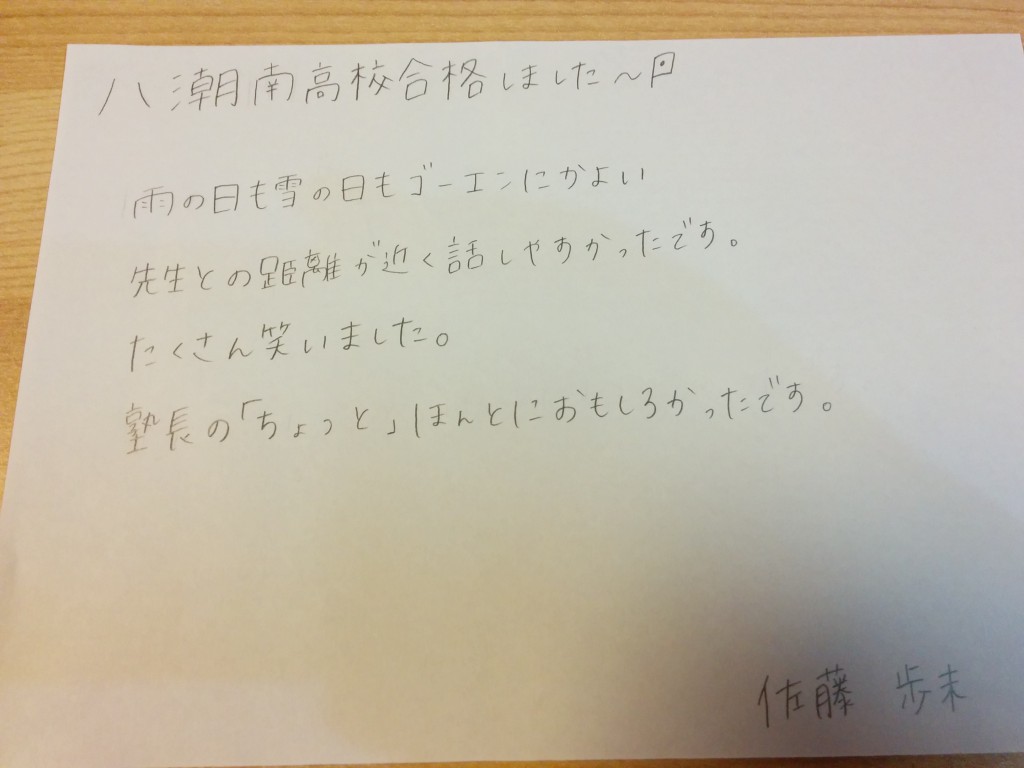 八潮南高校合格しました〜
雨の日も雪の日もゴーエンにかよい
先生との距離が近く話しやすかったです。
たくさん笑いました。
塾長の「ちょっと」ほんとにおもしろかったです。
佐藤 歩未